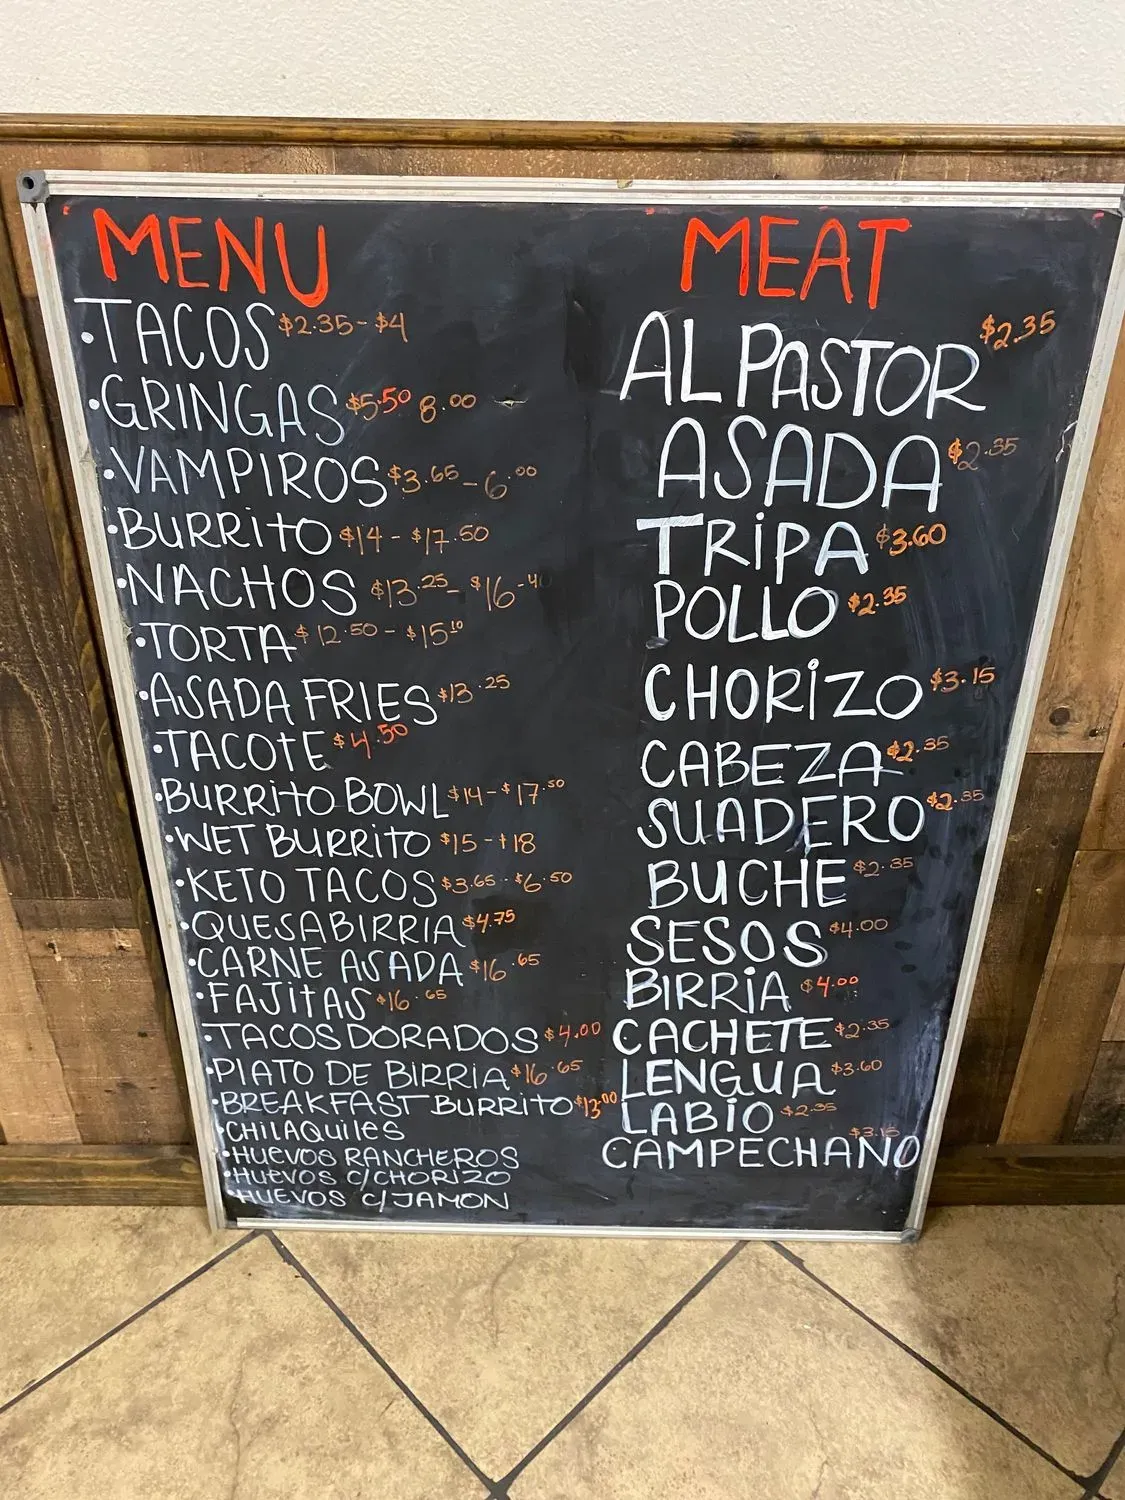 MENU
TACOS $2.35 - $4
GRINGAS $5.50 8.00
VAMPIROS $3.65 - 6.00
BURRITO $14 - $17.50
NACHOS $13.25 - $16.40
TORTA $12.50 - $15.10
ASADA FRIES $13.25
TACOTE $4.50
BURRITO BOWL $14 - $17.50
WET BURRITO $15 - $18
KETO TACOS $3.65 - $6.50
QUESABIRRIA $4.75
CARNE ASADA $16.65
FAJITAS $16.65
TACOS DORADOS $4.00
PLATO DE BIRRIA $16.65
BREAKFAST BURRITO $13.00
CHILAQUILES
HUEVOS RANCHEROS
HUEVOS C/CHORIZO
HUEVOS C/JAMON
MEAT
AL PASTOR $2.35
ASADA $2.35
TRIPA $3.60
POLLO $2.35
CHORIZO $3.15
CABEZA $2.35
SUADERO $2.35
BUCHE $2.35
SESOS $4.00
BIRRIA $4.00
CACHETE $2.35
LENGUA $3.60
LABIO $2.35
CAMPECHANO $3.15